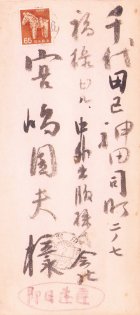 千代田区神田司町二ノ七
福祿ビル 中外出版株式会社
宮嶋国夫様
65